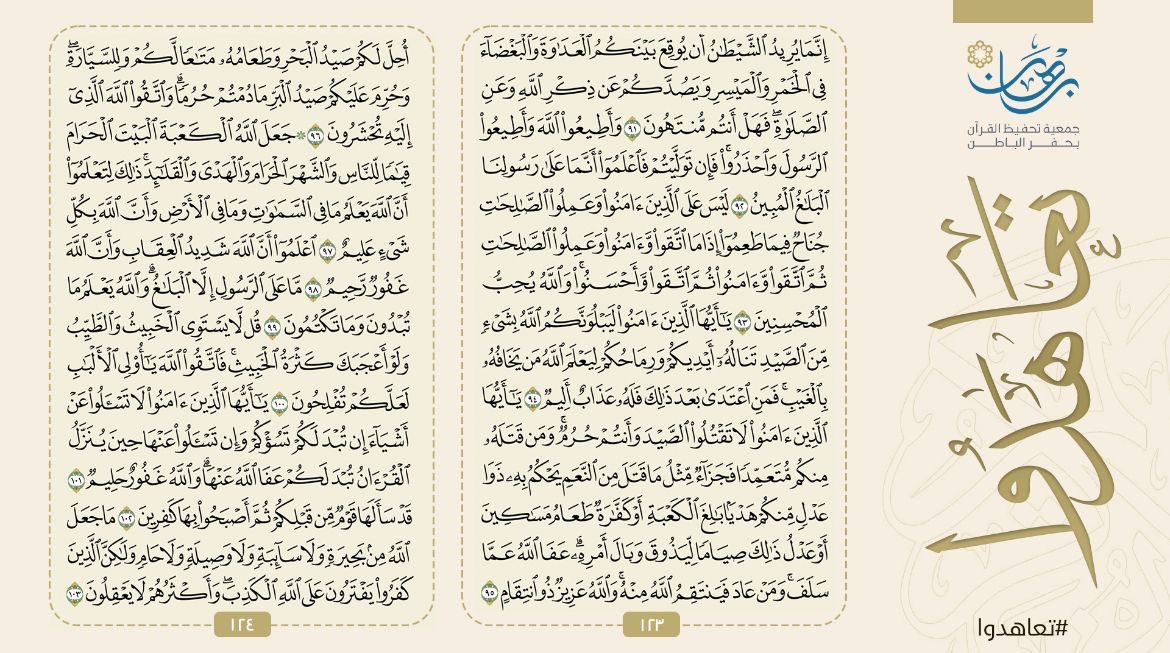 برهان
جمعية تحفيظ القرآن
بحفر الباطن
تعاهدوا
#تعاهدوا
إِنَّمَا يُرِيدُ ٱلشَّيْطَٰنُ أَن يُوقِعَ بَيْنَكُمُ ٱلْعَدَٰوَةَ وَٱلْبَغْضَآءَ
فِى ٱلْخَمْرِ وَٱلْمَيْسِرِ وَيَصُدَّكُمْ عَن ذِكْرِ ٱللَّهِ وَعَنِ
ٱلصَّلَوٰةِ ۖ فَهَلْ أَنتُم مُّنتَهُونَ ٩١ وَأَطِيعُوا۟ ٱللَّهَ وَأَطِيعُوا۟
ٱلرَّسُولَ وَٱحْذَرُوا۟ ۚ فَإِن تَوَلَّيْتُمْ فَٱعْلَمُوٓا۟ أَنَّمَا عَلَىٰ رَسُولِنَا
ٱلْبَلَٰغُ ٱلْمُبِينُ ٩٢ لَيْسَ عَلَى ٱلَّذِينَ ءَامَنُوا۟ وَعَمِلُوا۟ ٱلصَّٰلِحَٰتِ
جُنَاحٌ فِيمَا طَعِمُوٓا۟ إِذَا مَا ٱتَّقَوا۟ وَّءَامَنُوا۟ وَعَمِلُوا۟ ٱلصَّٰلِحَٰتِ
ثُمَّ ٱتَّقَوا۟ وَّءَامَنُوا۟ ثُمَّ ٱتَّقَوا۟ وَّأَحْسَنُوا۟ ۗ وَٱللَّهُ يُحِبُّ
ٱلْمُحْسِنِينَ ٩٣ يَٰٓأَيُّهَا ٱلَّذِينَ ءَامَنُوا۟ لَيَبْلُوَنَّكُمُ ٱللَّهُ بِشَىْءٍ
مِّنَ ٱلصَّيْدِ تَنَالُهُۥٓ أَيْدِيكُمْ وَرِمَاحُكُمْ لِيَعْلَمَ ٱللَّهُ مَن يَخَافُهُۥ
بِٱلْغَيْبِ ۚ فَمَنِ ٱعْتَدَىٰ بَعْدَ ذَٰلِكَ فَلَهُۥ عَذَابٌ أَلِيمٌ ٩٤ يَٰٓأَيُّهَا
ٱلَّذِينَ ءَامَنُوا۟ لَا تَقْتُلُوا۟ ٱلصَّيْدَ وَأَنتُمْ حُرُمٌ ۚ وَمَن قَتَلَهُۥ
مِنكُم مُّتَعَمِّدًا فَجَزَآءٌ مِّثْلُ مَا قَتَلَ مِنَ ٱلنَّعَمِ يَحْكُمُ بِهِۦ ذَوَا
عَدْلٍ مِّنكُمْ هَدْيًۢا بَٰلِغَ ٱلْكَعْبَةِ أَوْ كَفَّٰرَةٌ طَعَامُ مَسَٰكِينَ
أَوْ عَدْلُ ذَٰلِكَ صِيَامًا لِّيَذُوقَ وَبَالَ أَمْرِهِۦ ۗ عَفَا ٱللَّهُ عَمَّا
سَلَفَ ۚ وَمَنْ عَادَ فَيَنتَقِمُ ٱللَّهُ مِنْهُ ۗ وَٱللَّهُ عَزِيزٌ ذُو ٱنتِقَامٍ ٩٥
١٢٣
أُحِلَّ لَكُمْ صَيْدُ ٱلْبَحْرِ وَطَعَامُهُۥ مَتَٰعًا لَّكُمْ وَلِلسَّيَّارَةِ ۖ
وَحُرِّمَ عَلَيْكُمْ صَيْدُ ٱلْبَرِّ مَا دُمْتُمْ حُرُمًا ۗ وَٱتَّقُوا۟ ٱللَّهَ ٱلَّذِىٓ
إِلَيْهِ تُحْشَرُونَ ٩٦ ۞ جَعَلَ ٱللَّهُ ٱلْكَعْبَةَ ٱلْبَيْتَ ٱلْحَرَامَ
قِيَٰمًا لِّلنَّاسِ وَٱلشَّهْرَ ٱلْحَرَامَ وَٱلْهَدْىَ وَٱلْقَلَٰٓئِدَ ۚ ذَٰلِكَ لِتَعْلَمُوٓا۟
أَنَّ ٱللَّهَ يَعْلَمُ مَا فِى ٱلسَّمَٰوَٰتِ وَمَا فِى ٱلْأَرْضِ وَأَنَّ ٱللَّهَ بِكُلِّ
شَىْءٍ عَلِيمٌ ٩٧ ٱعْلَمُوٓا۟ أَنَّ ٱللَّهَ شَدِيدُ ٱلْعِقَابِ وَأَنَّ ٱللَّهَ
غَفُورٌ رَّحِيمٌ ٩٨ مَّا عَلَى ٱلرَّسُولِ إِلَّا ٱلْبَلَٰغُ ۗ وَٱللَّهُ يَعْلَمُ مَا
تُبْدُونَ وَمَا تَكْتُمُونَ ٩٩ قُل لَّا يَسْتَوِى ٱلْخَبِيثُ وَٱلطَّيِّبُ
وَلَوْ أَعْجَبَكَ كَثْرَةُ ٱلْخَبِيثِ ۚ فَٱتَّقُوا۟ ٱللَّهَ يَٰٓأُو۟لِى ٱلْأَلْبَٰبِ
لَعَلَّكُمْ تُفْلِحُونَ ١٠٠ يَٰٓأَيُّهَا ٱلَّذِينَ ءَامَنُوا۟ لَا تَسْـَٔلُوا۟ عَنْ
أَشْيَآءَ إِن تُبْدَ لَكُمْ تَسُؤْكُمْ وَإِن تَسْـَٔلُوا۟ عَنْهَا حِينَ يُنَزَّلُ
ٱلْقُرْءَانُ تُبْدَ لَكُمْ عَفَا ٱللَّهُ عَنْهَا ۗ وَٱللَّهُ غَفُورٌ حَلِيمٌ ١٠١
قَدْ سَأَلَهَا قَوْمٌ مِّن قَبْلِكُمْ ثُمَّ أَصْبَحُوا۟ بِهَا كَٰفِرِينَ ١٠٢ مَا جَعَلَ
ٱللَّهُ مِنۢ بَحِيرَةٍ وَلَا سَآئِبَةٍ وَلَا وَصِيلَةٍ وَلَا حَامٍ وَلَٰكِنَّ ٱلَّذِينَ
كَفَرُوا۟ يَفْتَرُونَ عَلَى ٱللَّهِ ٱلْكَذِبَ ۖ وَأَكْثَرُهُمْ لَا يَعْقِلُونَ ١٠٣
١٢٤